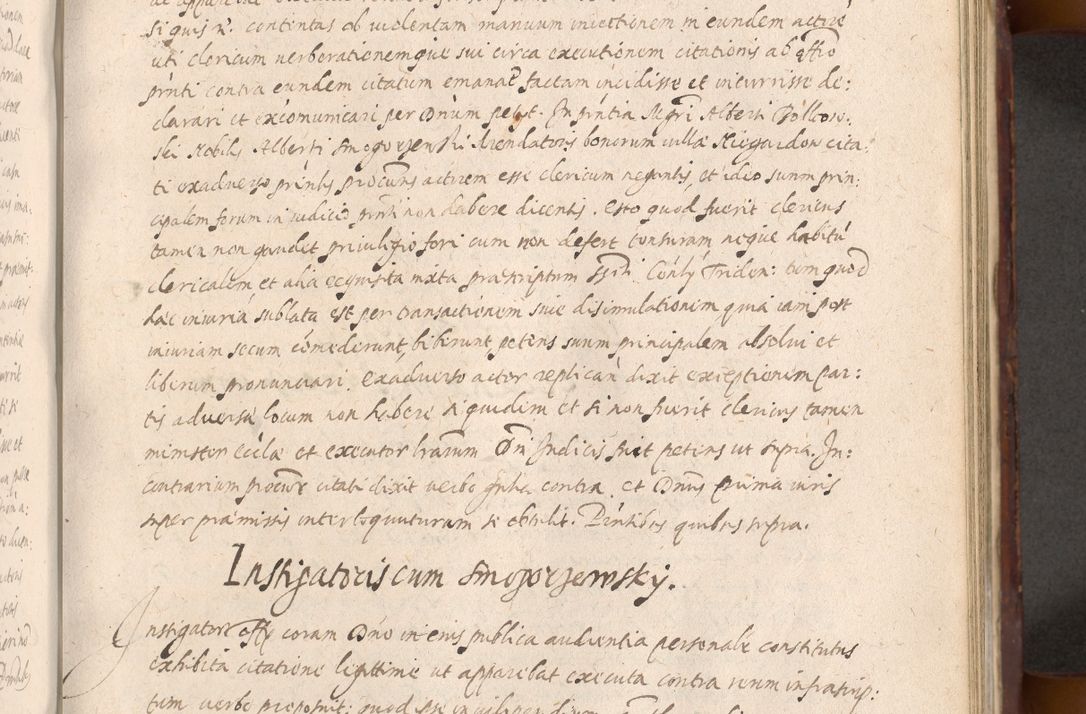 si quis r̃. contentas ob violentam manuum iniectionem in eundem actorē
uti clericum verberationemque sui circa executionem citationis ab offo
prn̄ti contra eundem citatum emanat̃ factam incidisse et incurrisse de:
clarari et excōmunicari per Dnūm petyt. In prn̄tia Mgrī Alberti
ski Nobilis Alberti Smogorzewski Arendatoris bonorum villæ cita:
ti exadverso prn̄tis procur̄is actorem esse clericum negantis, et ideo suum prin:
cipalem forum in iudicio prn̄ti non habere dicentis. Esto quod fuerit clericus
tamen non gaudet privilegio fori cum non defert tonsuram neque habitū
clericalem, et alia requisita iuxta præscriptum Triden: tum quod
hæc iniuria sublata est per transactionem sive disimulationem, quia iam post
iniuriam secum cōmederunt, biberunt, petens suum principalem absolvi et
liberum pronunciari. Exadverso actor replicañ dixit exceptionem par:
tis adversæ locum non habere siquidem et si non fuerit clericus tamen
minister Ecclæ et executor lrārum Dn̄i Iudicis fuit petens ut supra. In:
contrarium procur̄ citati dixit verbo contra. et Dnūs prima iuris
super præmissis interloquuturum se obtulit. Pñtibus quibus supra.
Instigatoris cum Smogorzewskÿ.
Instigator offÿ coram Dn̄o in eius publica audientia personalr̄ constitutus
exhibita citatione legittimē ut apparebat executa contra reum infrascrip:
tum verbo proposuit: quod